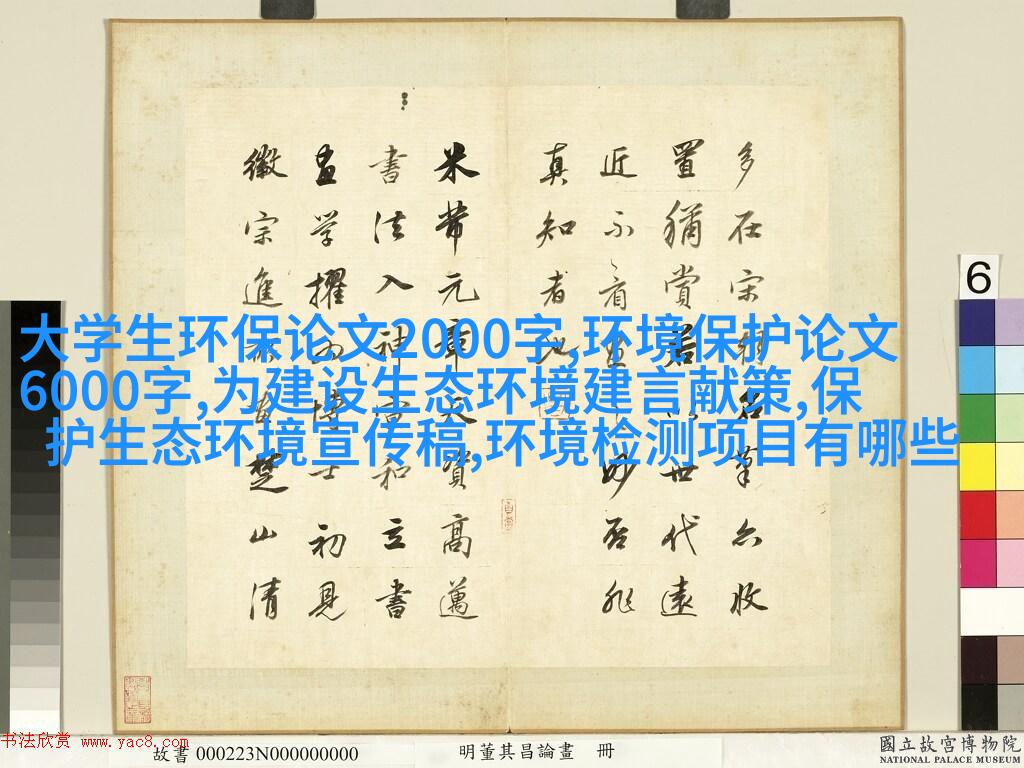 大学生环保论文2000字,环境保护论文
6000字,为建设生态环境建言献策,保
护生态环境宣传稿,环境检测项目有哪些
多在宋名筆亦收
置猶賞者以世代遠
近不看畫之妙否非
真知者也
米芾元章天資高邁
書法入神宣和立書
畫学擢為博士初見
徽宗進所畫楚山清
6
书法欣赏 www.yac8.com
故書 000223N000000000
明董其昌論畫 冊
國立故宮博物院
NATIONAL PALACE MUSEUM